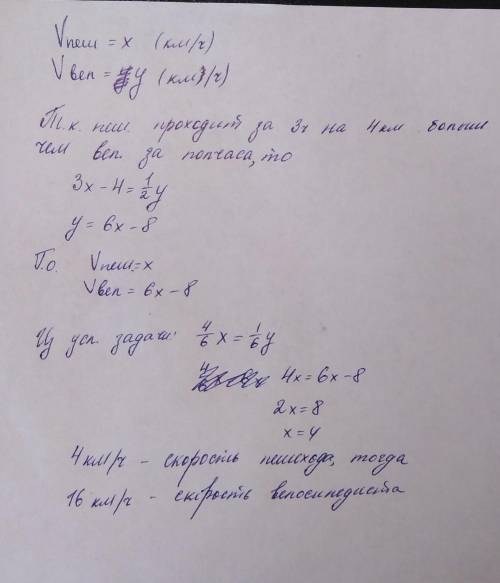 Vпеш = x (км/ч)
Vвел = y (км/ч)
Т.к. пеш. проходит за 3ч на 4км больше
чем вел. за полчаса, то
3x - 4 = 1/2 y
y = 6x - 8
Т.о. Vпеш = x
Vвел = 6x - 8
Из усл. задачи: 4/6 x = 1/6 y
4x = 6x - 8
2x = 8
x = 4
4км/ч - скорость пешехода, тогда
16 км/ч - скорость велосипедиста